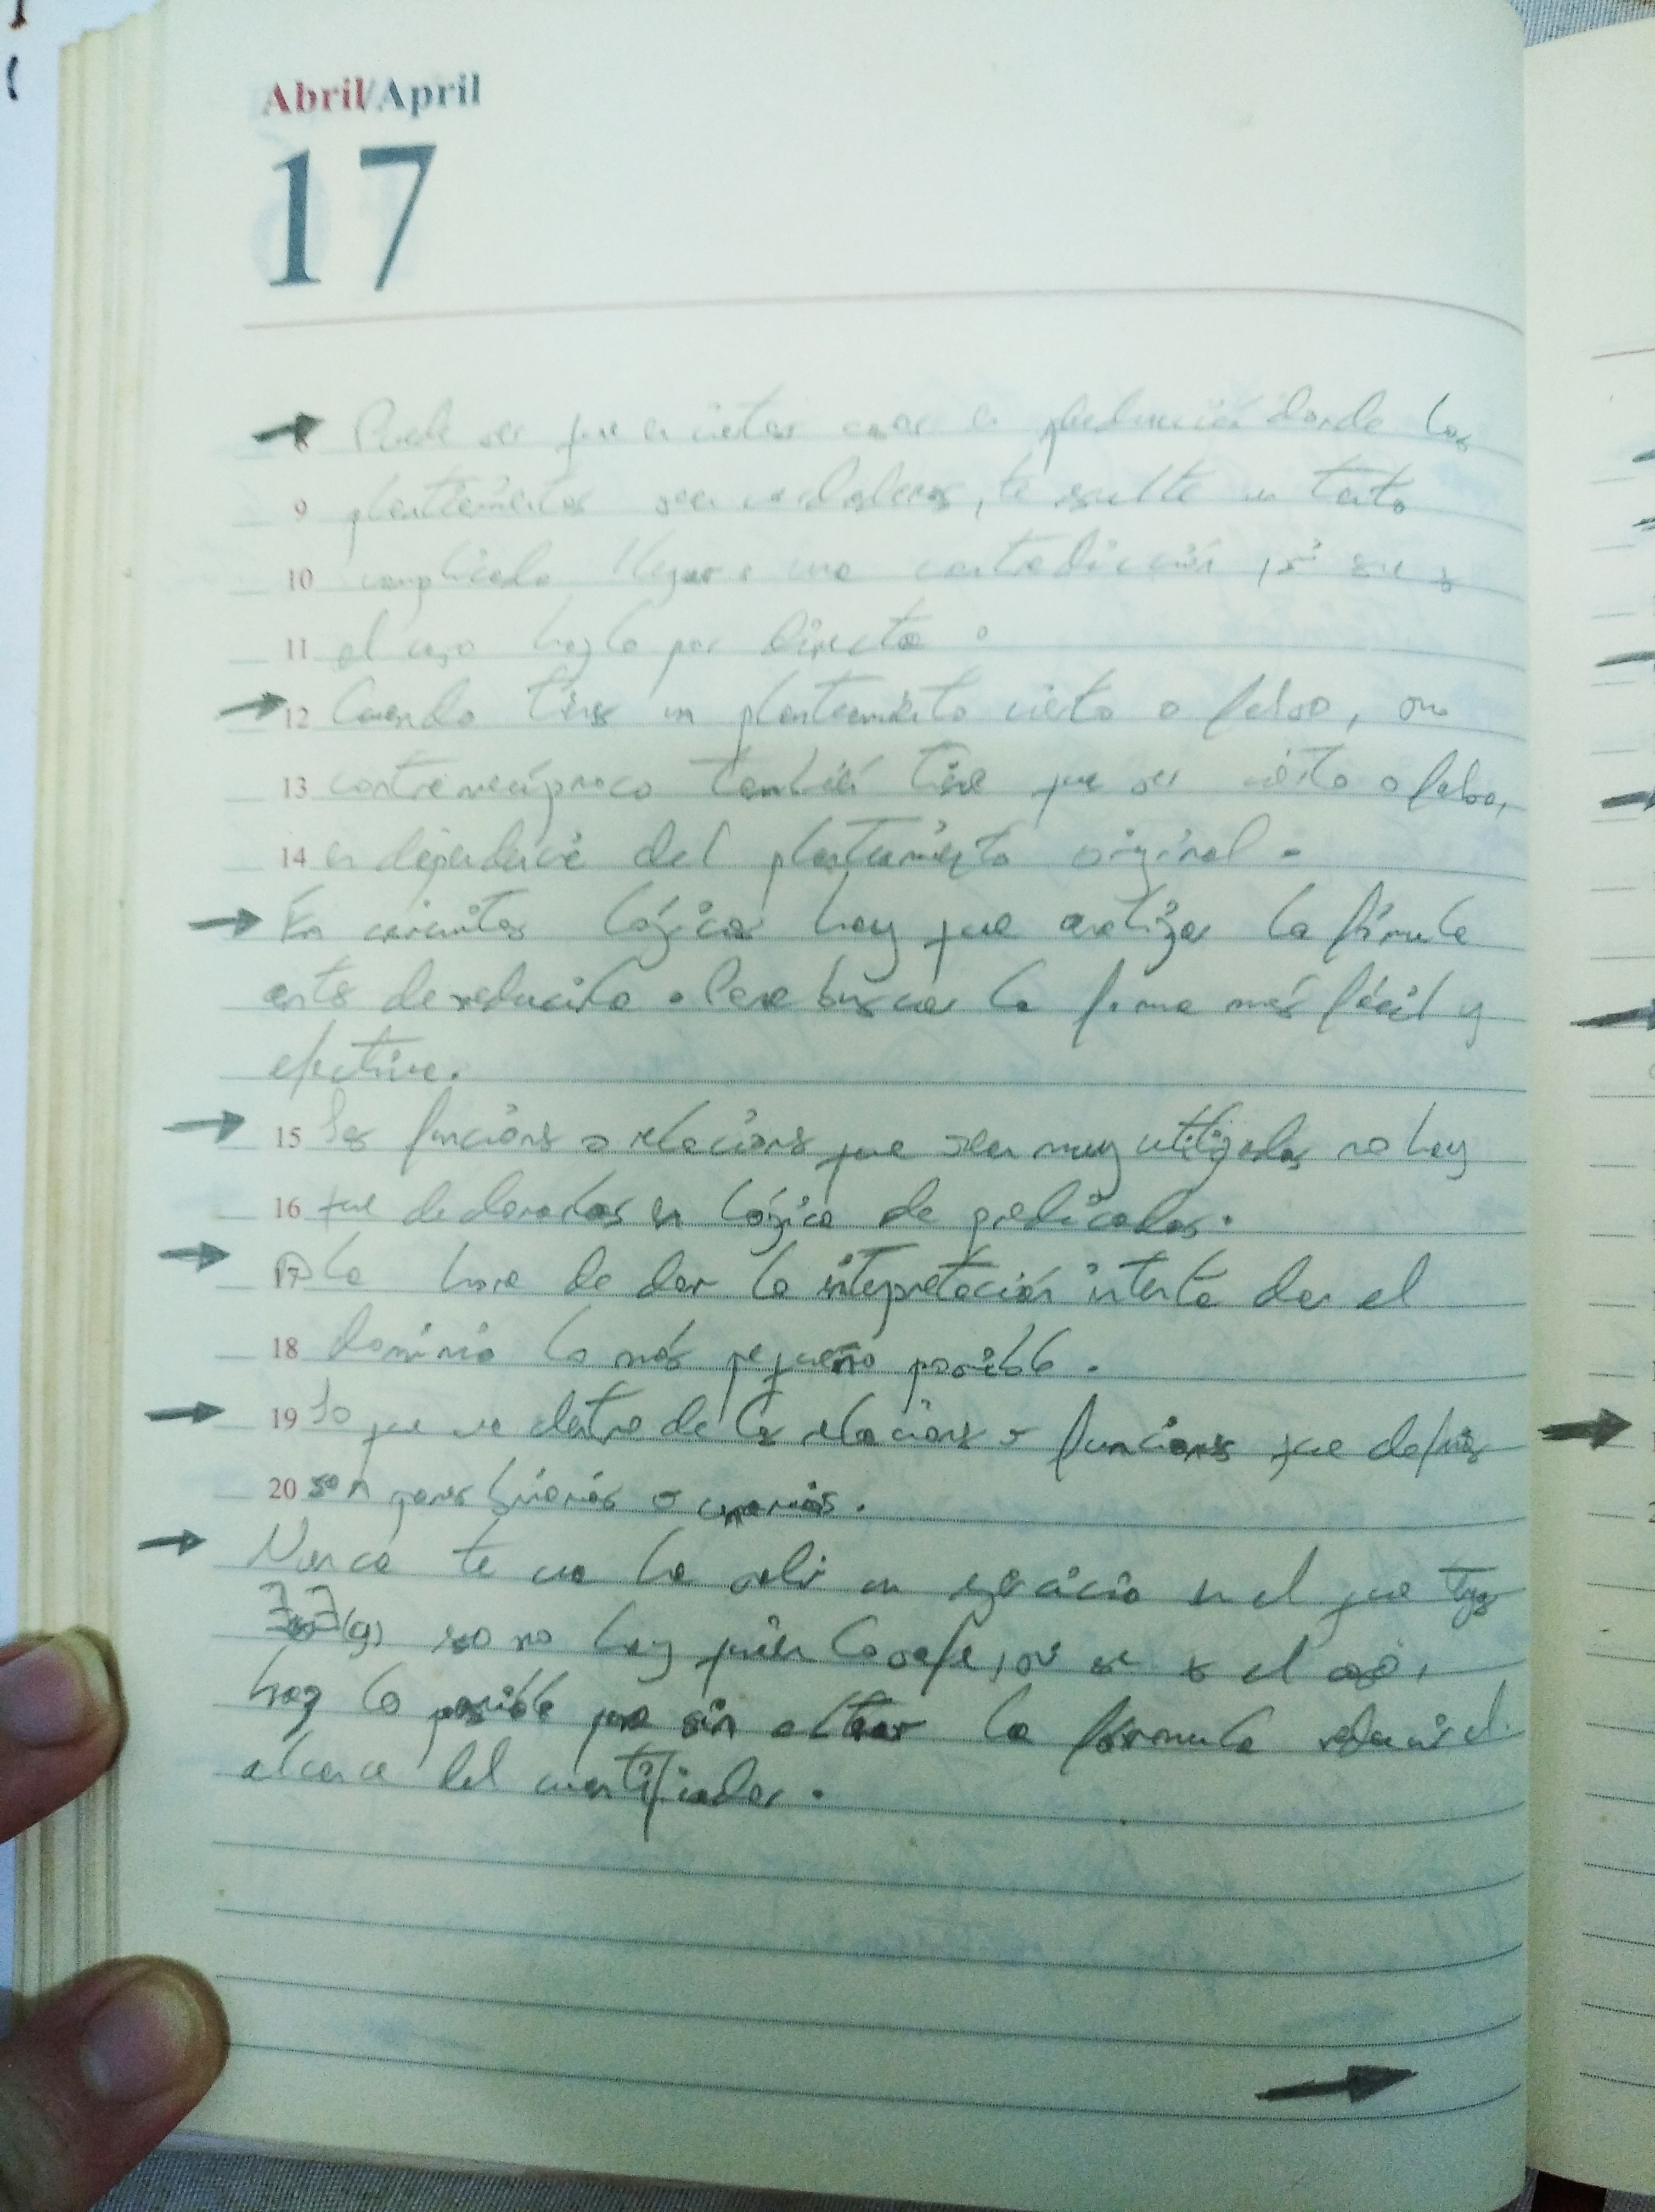 Abril/April
17
→ Puede ser que en ciertos casos en deducción donde los
9 planteamientos sean verdaderos, te resulte un tanto
10 complicado llegar a una contradicción, si ese es
11 el caso hazlo por directa.
→ 12 Cuando tienes un planteamiento cierto o falso, su
13 contrarecíproco también tiene que ser cierto o falso,
14 en dependencia del planteamiento original.
→ En circuitos lógicos hay que analizar la fórmula
antes de reducirla. Para buscar la forma más fácil y
efectiva.
→ 15 Las funciones o relaciones que sean muy utilizadas no hay
16 que declararlas en lógica de predicados.
→ 17 A la hora de dar la interpretación intenta dar el
18 dominio lo más pequeño posible.
→ 19 Lo que va dentro de las relaciones o funciones que defines
20 son pares binarios o unarios.
→ Nunca te va ha salir un ejercicio en el que tengas
(y) eso no hay quien lo safe, si ese es el caso,
haz lo posible que sin alterar la fórmula reducir el
alcance del cuantificador.
→